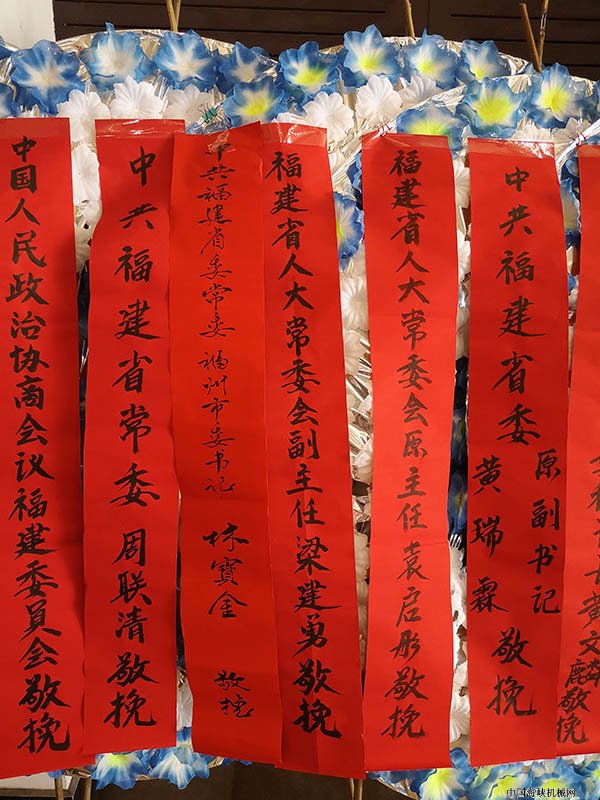 中国人民政治协商会议福建委员会敬挽
中共福建省常委周联清敬挽
中共福建省委常委 福州市委书记 林寶金 敬挽
福建省人大常委会副主任梁建勇敬挽
福建省人大常委会原主任袁启彤敬挽
中共福建省委
原副书记
黄瑞霖
敬挽
黄文麟敬挽
中国海峡机械网